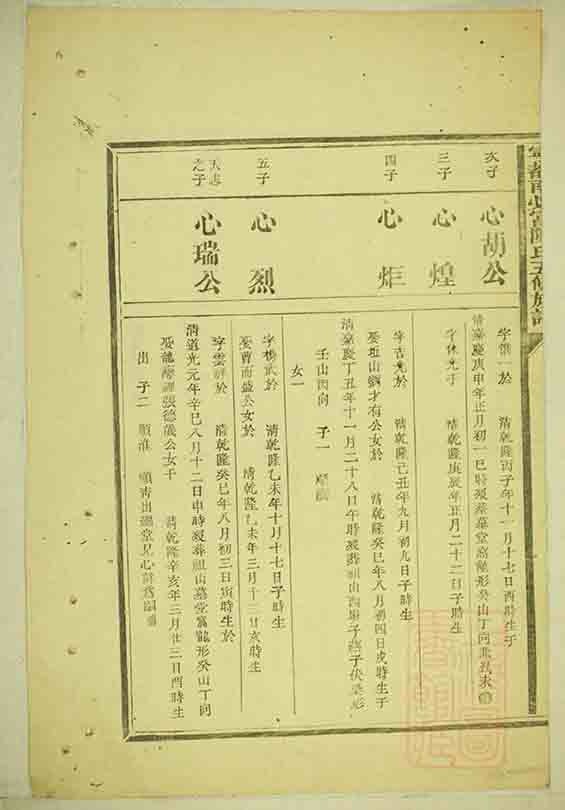 次子
心胡公
字惟一於 清乾隆丙子年十一月十七日酉時生于
清嘉慶庚申年正月初一巳時歿墓墓堂窩龍形癸山丁向
三子
心煌
字休光于 清乾隆庚辰年正月二十二日子時生
四子
心炬
字吉光於 清乾隆己丑年九月初九日子時生
娶祖山劉才有公女於 清乾隆癸巳年八月初四日戌時生于
清嘉慶丁丑年十一月二十八日午時歿葬祖山
壬山丙向 子一
女一
五子
心烈
字揚武於 清乾隆乙未年十月十七日子時生
娶曹而盛公女於 清乾隆乙未年三月十三日亥時生
人志之子
心瑞公
字雲祥於 清乾隆癸巳年八月初三日寅時生於
清道光元年辛巳八月十二日申時歿葬祖山墓堂窩龍形癸山丁向
娶龍 張德儀公女于 清乾隆辛亥年三月廿三日酉時生
出 子二 順淮 順